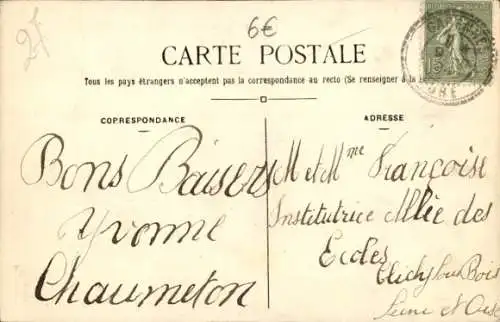 2f
6€
CARTE POSTALE
Tous les pays étrangers n'acceptent pas la correspondance au recto (Se renseigner à la
CORRESPONDANCE
ADRESSE
Bons Baisers
Yvonne
Chaumeton
M et Mme Françoise
Institutrice Mlle des
Ecoles
Clichy sous Bois
Seine et Oise